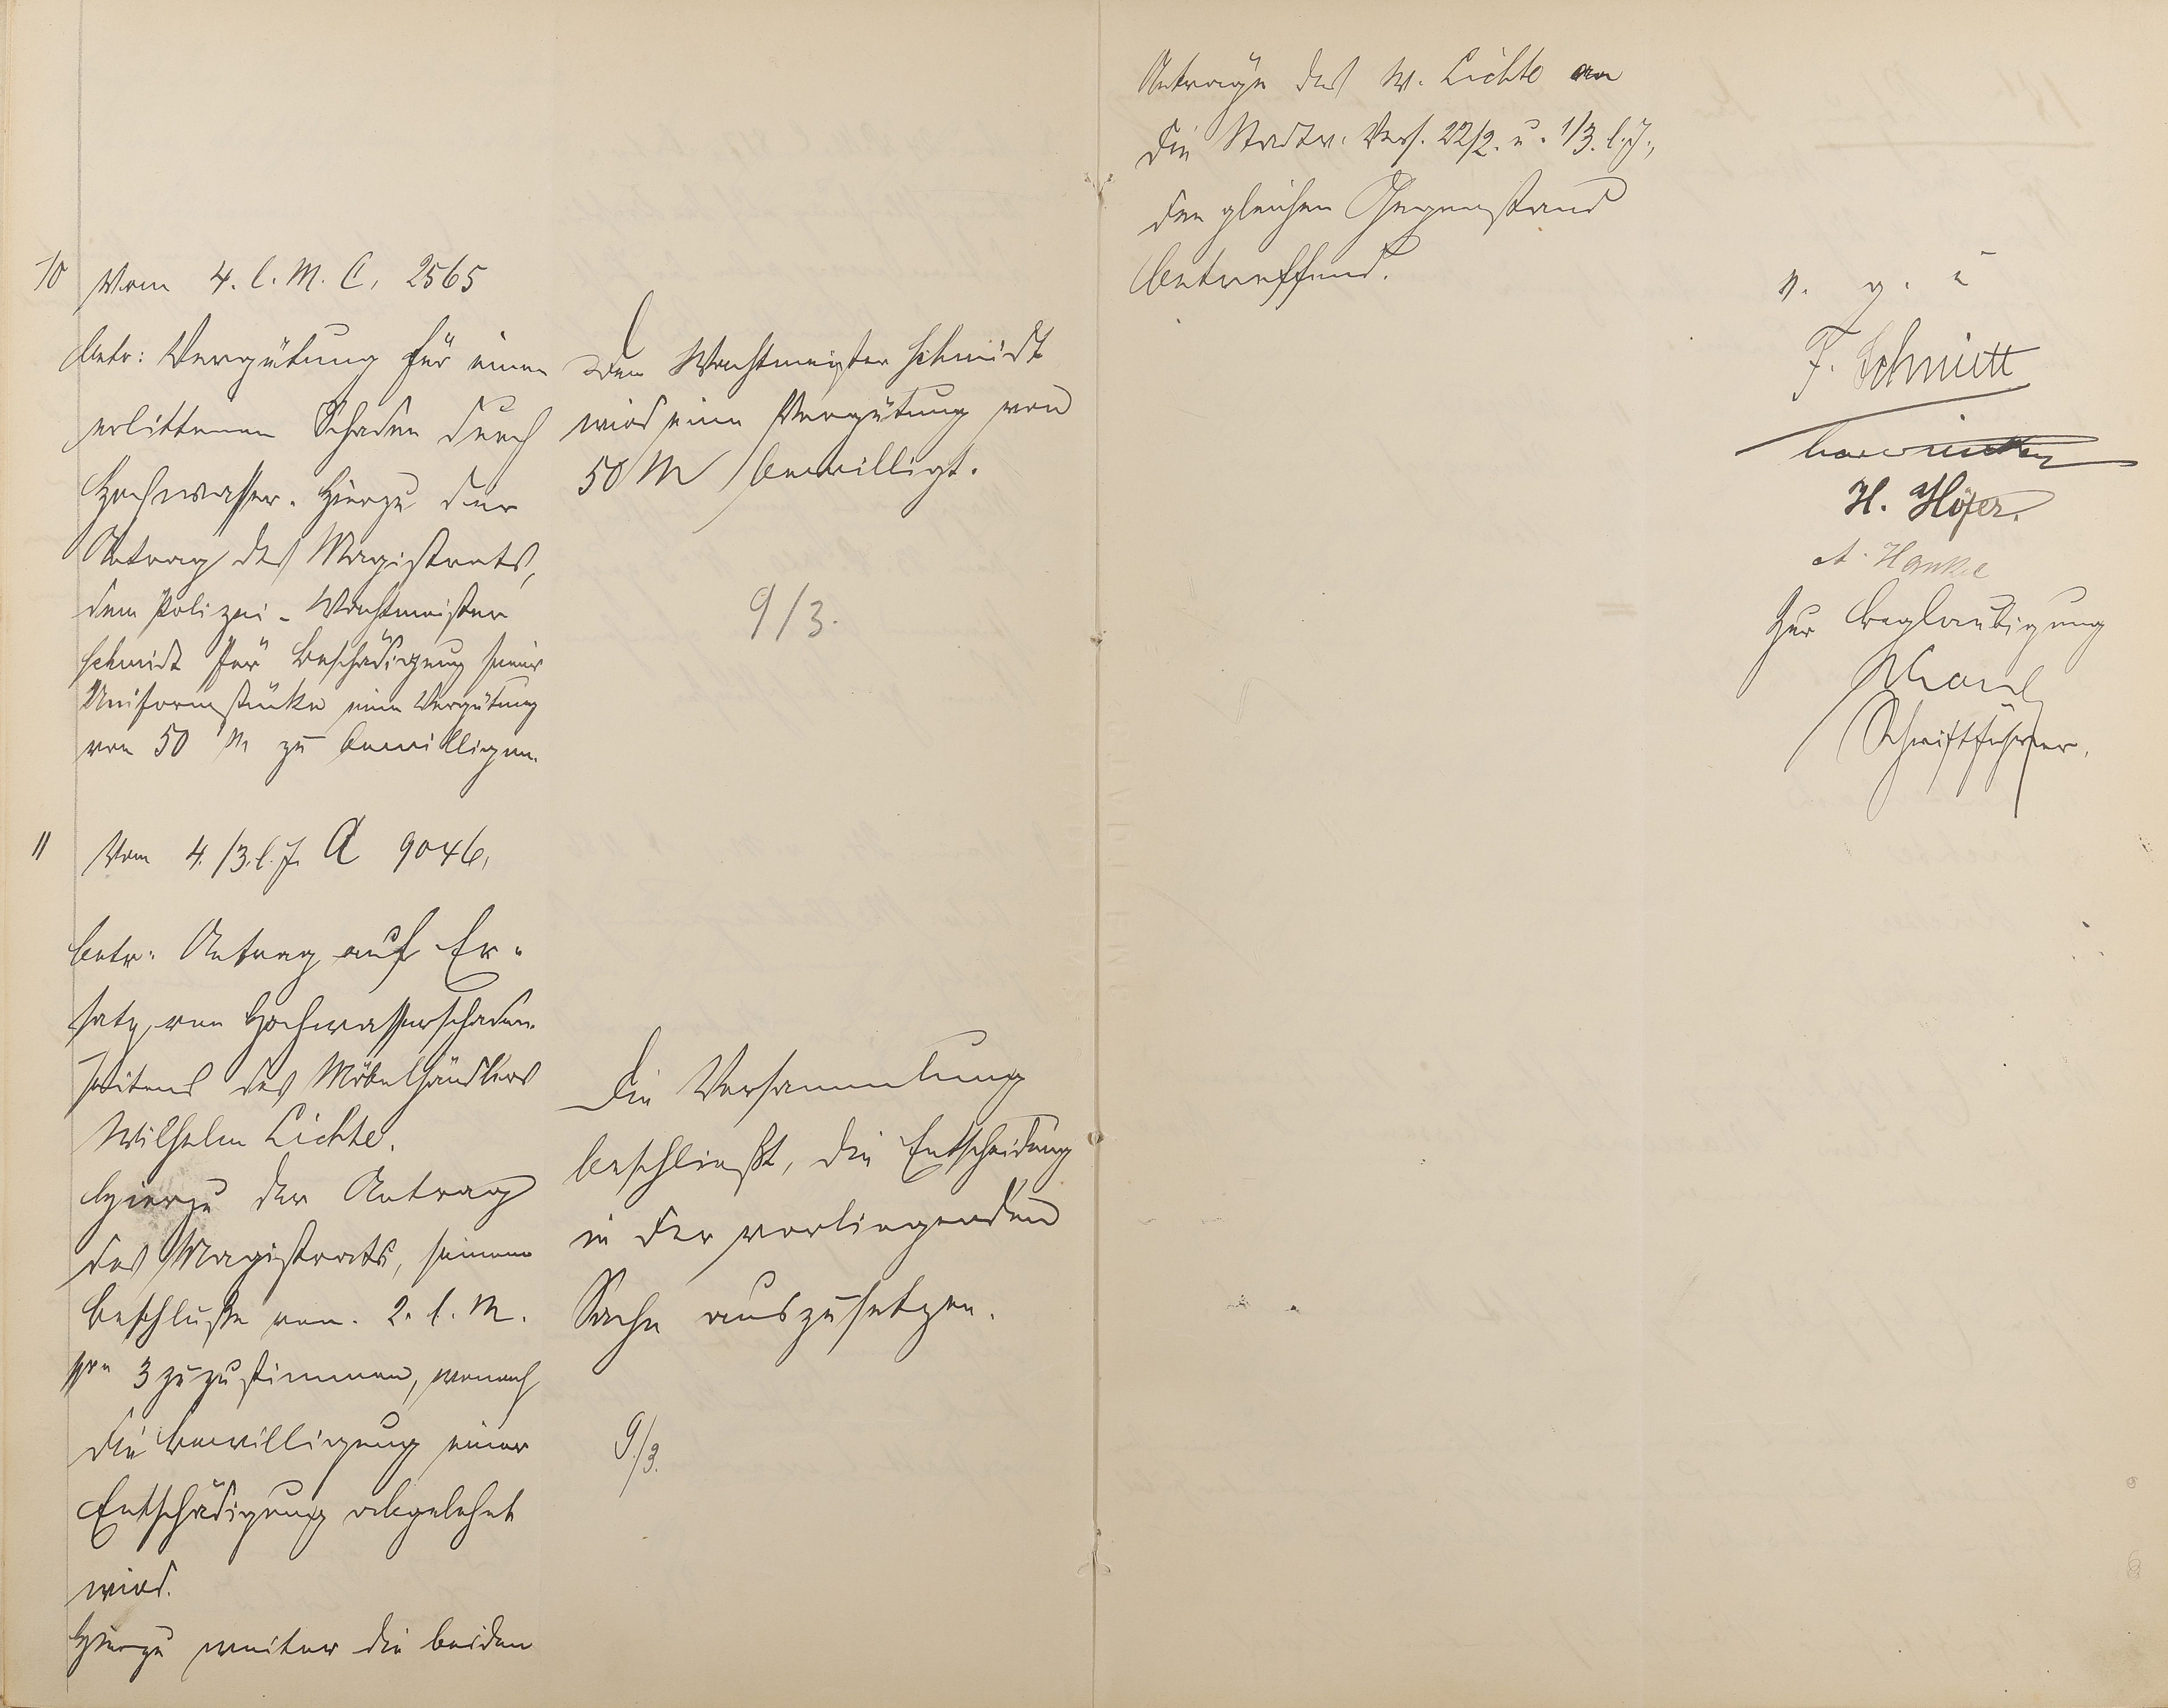 10
Vom 4. l. M. C. 2565
betr: Vergütung für einen
erlittenen Schaden durch
Hochwasser. Hierzu der
Antrag des Magistrats,
dem Polizei-Wachtmeister
Schmidt für Beschädigung seiner
Uniformstücke eine Vergütung
von 50 M zu bewilligen.
Dem Wachtmeister Schmidt
wird eine Vergütung von
50 M bewilligt.
9/3.
11
Vom 4./3. l. J. A 9046,
betr: Antrag auf Er-
satz von Hochwasserschaden
seitens des Möbelhändlers
Wilhelm Lichte.
Hierzu der Antrag
des Magistrats, seinem
Beschluße von 2. l. M.
3 zuzustimmen, wonach
die Bewilligung einer
Entschädigung abgelehnt
wird.
Hierzu weiter die beiden
Die Versammlung
beschließt, die Entscheidung
in der vorliegenden
Sache auszusetzen.
9./3.
Anträge des W. Lichte an
die Stadtv. Vers. 22/2. u. 1/3. l. J.,
den gleichen Gegenstand
betreffend.
v. g. u
F. Schmitt
H. Höfer.
A. Hanke
Zur Beglaubigung
Schriftführer.